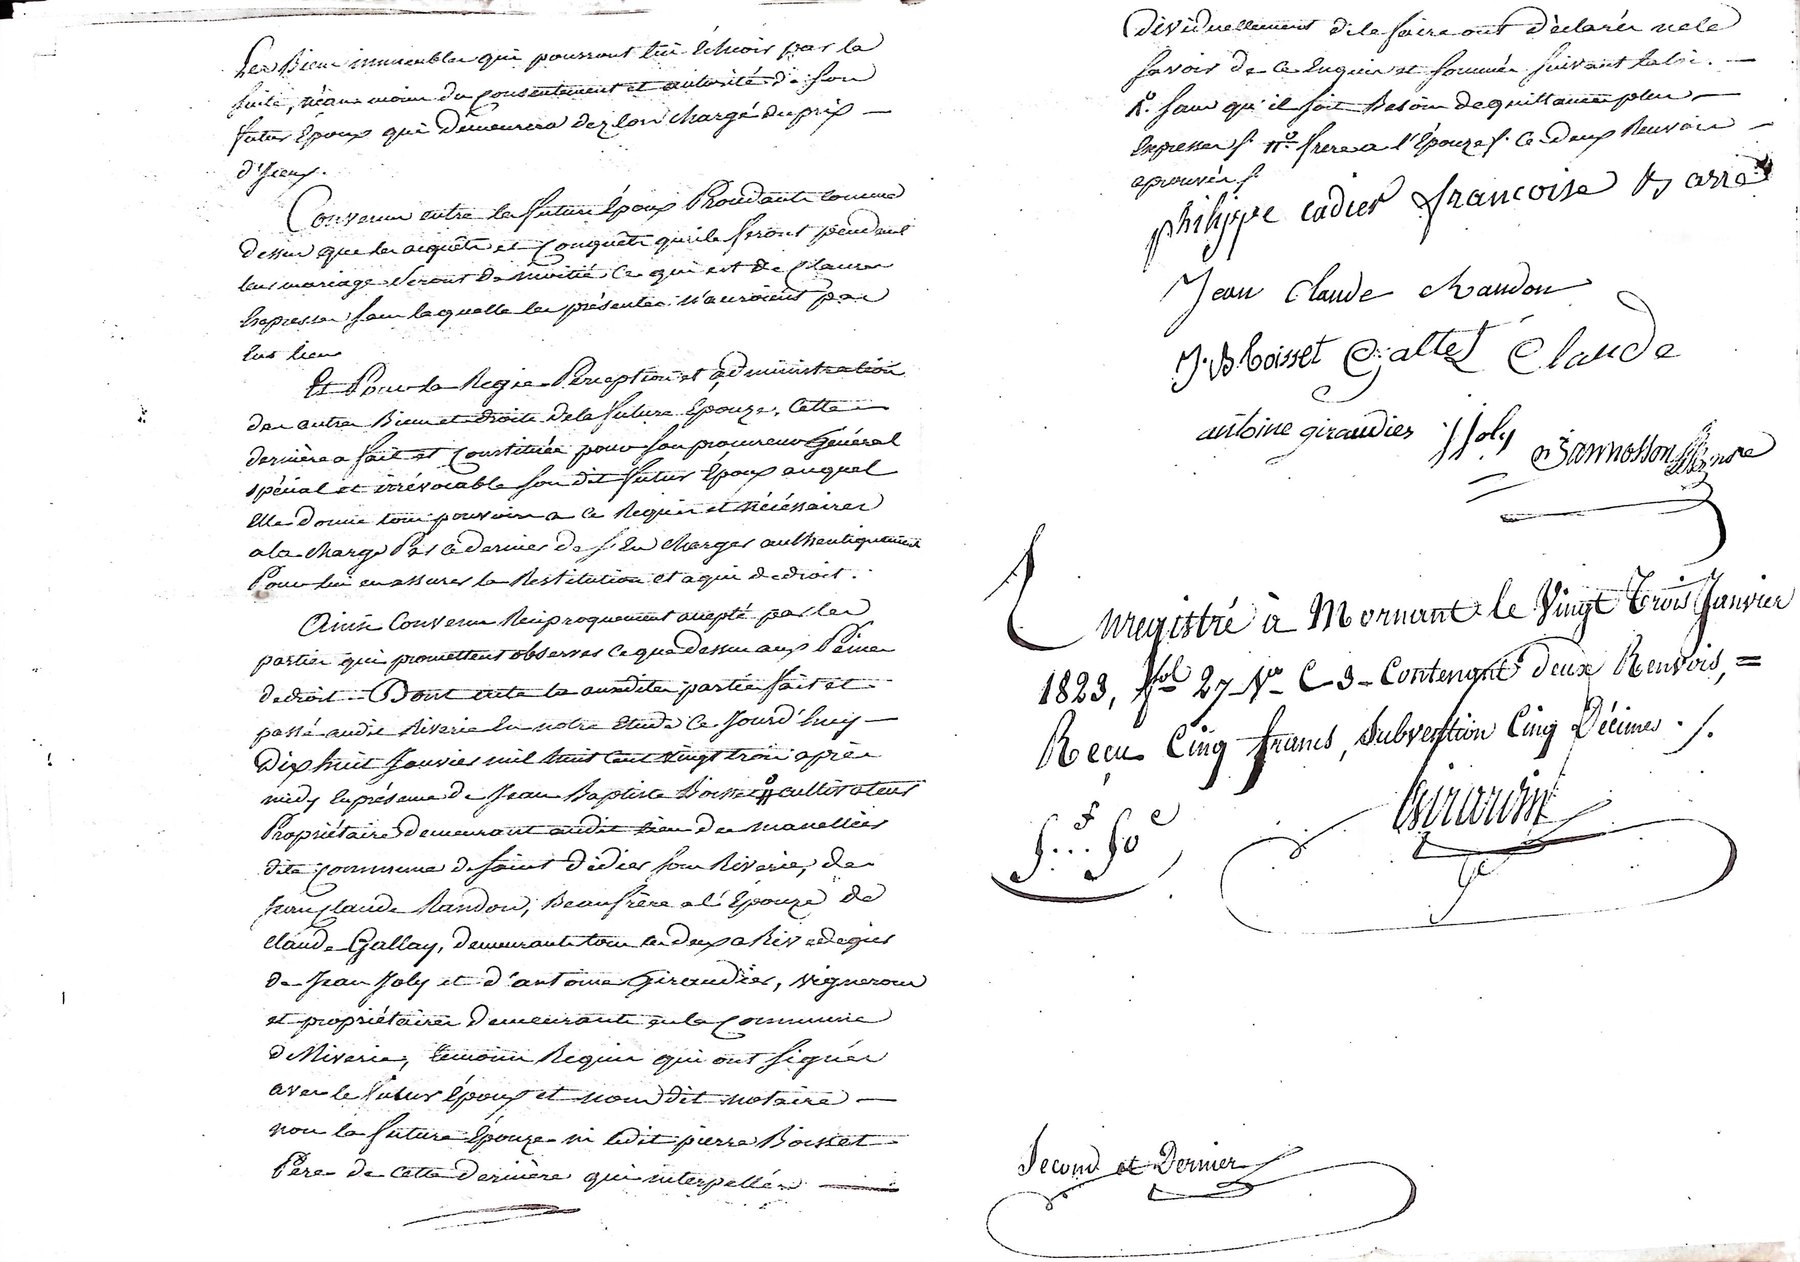 Les Biens immeubles qui pourront lui Echoir par la
suite, néanmoins du Consentement et autorité de son
futur Époux qui demeurera dez lors chargé du prix —
d'Iceux.
Convenu entre les futurs Époux Procédants comme
dessus que les acquêts et Conquêts qu'ils feront pendant
leur mariage seront de moitié Ce qui est de Clauses
Expresses sans laquelle les présentes n'auroient pas
Eus lieu
Et Pour la Regie Perception et administration
des autres Biens et droits de la future Epouze, Cette
dernière a fait et Constituée pour son procureur Général
spécial et irrévocable son dit futur Époux auquel
Elle donne tous pouvoirs a ce Requis et nécéssaires
a la charge Par ce dernier de s'En charger authentiquement
Pour lui en assurer la Restitution et a qui de droit.
Ainsi Convenu Réciproquement accepté par les
parties qui promettent observer Ce que dessus aux Peines
de droit Dont acte les susdites parties fait et
passé audit Riverie En notre Etude Ce Jourd'huy —
Dix huit Janvier mil huit Cent vingt trois après
midy En présence de Jean Baptiste Boisset cultivateur
Propriétaire demeurant audit lieu des manellies
dite Commune de Saint Didier sous Riverie, de
Jean Claude Randon, Beaufrère a l'Épouze de
Claude Gallay, demeurants tous les deux a
de Jean Joly et d'antoine Giraudier, vignerons
et propriétaires demeurants en la Commune
de Riverie, témoins Requis qui ont signés
avec le futur Époux et nous dit notaire —
non la future Épouze ni ledit pierre Boisset
Père de cette dernière qui interpellés —
dividuellement de le faire ont déclarés ne le
savoir de ce Enquis et sommés suivant la loi. —
sans qu'il soit Besoin de quittance plus —
Expresses frere a l'Épouze Ce deux Renvois —
aprouvés
philippe Cadier francoise
Jean Claude Randon
J. B. Boisset Gallet Claude
antoine giraudier J Joly Jannosson
Enregistré à Mornant le Vingt Trois Janvier
1823, fol 27 Vo C 3 Contenant deux Renvois, =
Reçu Cinq francs, Subvention Cinq Décimes ./.
Girardin
Second et Dernier